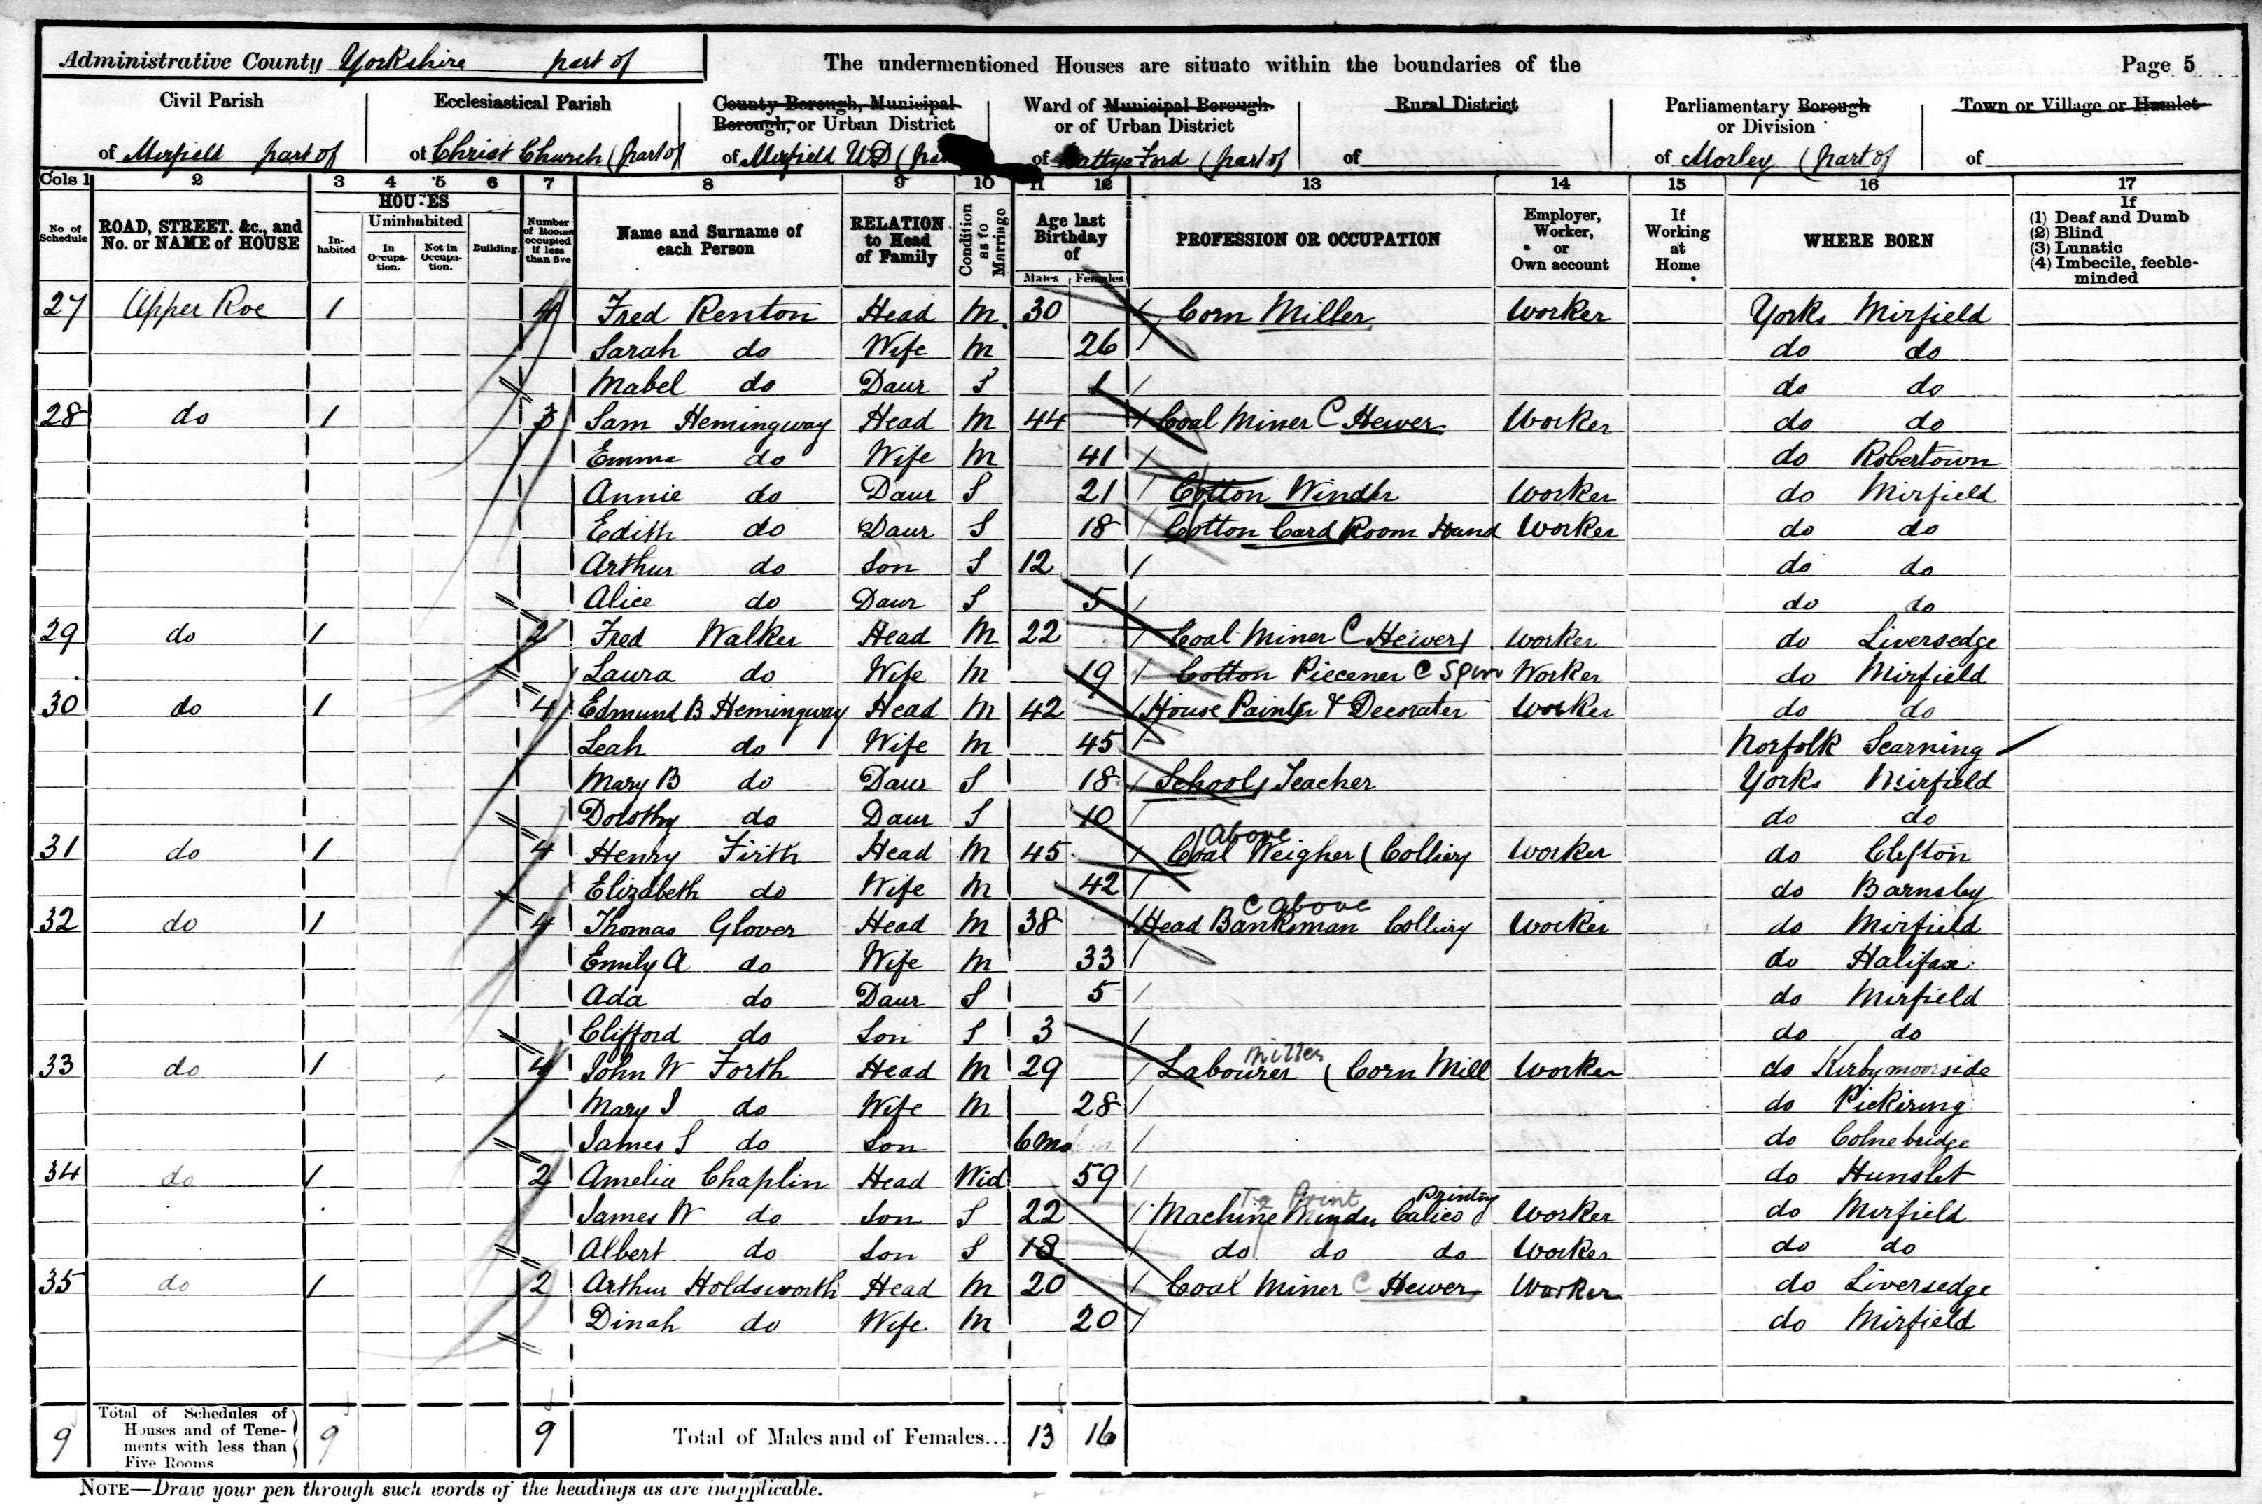 Administrative County Yorkshire part of
The undermentioned Houses are situate within the boundaries of the
Page 5
Civil Parish
of Mirfield part of
Ecclesiastical Parish
of Christ Church (part of
County Borough, Municipal Borough, or Urban District
of Mirfield UD (
Ward of Municipal Borough or of Urban District
of Battye Ford (part of
Rural District
of
Parliamentary Borough or Division
of Morley (part of
Town or Village or Hamlet
of
Cols 1 2 3 4 5 6 7 8 9 10 11 12 13 14 15 16 17
No. of Schedule
ROAD, STREET, &c., and No. or NAME of HOUSE
HOUSES
Inhabited
Uninhabited
In Occupation.
Not in Occupation.
Building.
Number of Rooms occupied if less than five
Name and Surname of each Person
RELATION to Head of Family
Condition as to Marriage
Age last Birthday of
Males Females
PROFESSION OR OCCUPATION
Employer, Worker, or Own account
If Working at Home
WHERE BORN
If
(1) Deaf and Dumb
(2) Blind
(3) Lunatic
(4) Imbecile, feeble-minded
27 Upper Roe 1 4 Fred Renton Head M 30 Corn Miller Worker Yorks Mirfield
Sarah do Wife M 26 do do
Mabel do Daur S 1 do do
28 do 1 3 Sam Hemingway Head M 44 Coal Miner C Hewer Worker do do
Emma do Wife M 41 do Robertown
Annie do Daur S 21 Cotton Winder Worker do Mirfield
Edith do Daur S 18 Cotton Card Room Hand Worker do do
Arthur do Son S 12 do do
Alice do Daur S 5 do do
29 do 1 2 Fred Walker Head M 22 Coal Miner C Hewer Worker do Liversedge
Laura do Wife M 19 Cotton Piecener C Spin Worker do Mirfield
30 do 1 4 Edmund B Hemingway Head M 42 House Painter & Decorater Worker do do
Leah do Wife M 45 Norfolk Scarning
Mary B do Daur S 18 School Teacher Yorks Mirfield
Dorothy do Daur S 10 do do
31 do 1 4 Henry Firth Head M 45 Coal Weigher (Colliery above Worker do Clifton
Elizabeth do Wife M 42 do Barnsley
32 do 1 4 Thomas Glover Head M 38 Head Banksman Colliery C above Worker do Mirfield
Emily A do Wife M 33 do Halifax
Ada do Daur S 5 do Mirfield
Clifford do Son S 3 do do
33 do 1 4 John W Forth Head M 29 Labourer (Corn Mill miller Worker do Kirbymoorside
Mary J do Wife M 28 do Pickiring
James S do Son 6 mo do Colnebridge
34 do 1 2 Amelia Chaplin Head Wid 59 do Hunslet
James W do Son S 22 Machine Minder Calico Printing Worker do Mirfield
Albert do Son S 18 do do do Worker do do
35 do 1 2 Arthur Holdsworth Head M 20 Coal Miner C Hewer Worker do Liversedge
Dinah do Wife M 20 do Mirfield
9 Total of Schedules of Houses and of Tenements with less than Five Rooms 9 9 Total of Males and of Females... 13 16
NOTE—Draw your pen through such words of the headings as are inapplicable.